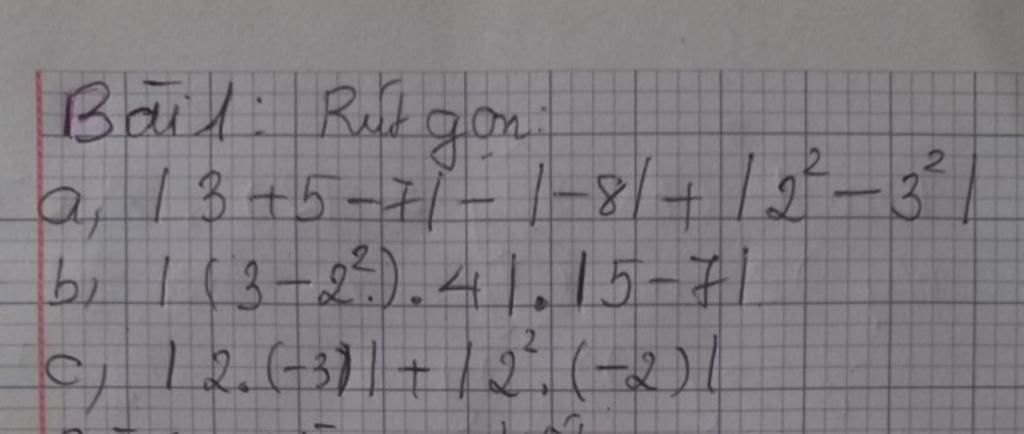 Bài 1: Rút gọn:
a, |3+5-7|-|-8|+|2²-3²|
b, |(3-2²).4|.|5-7|
c, |2.(-3)|+|2².(-2)|